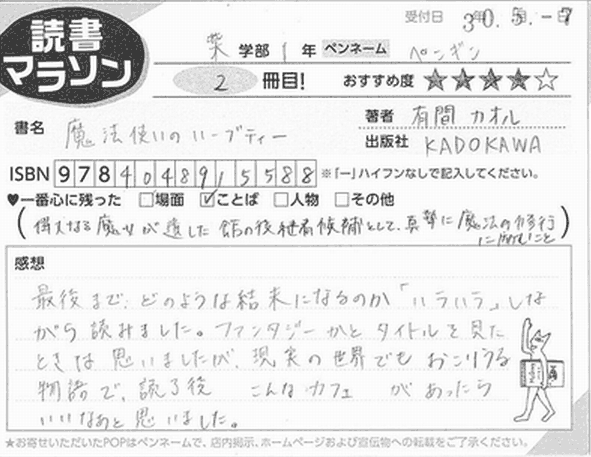 受付日 30.5.-7
読書
マラソン
薬 学部 1 年 ペンネーム ペンギン
2 冊目! おすすめ度 ★★★★☆
書名 魔法使いのハーブティー
著者 有間カオル
出版社 KADOKAWA
ISBN 9784048915588 ※「ー」ハイフンなしで記入してください。
♥一番心に残った □場面 ☑ことば □人物 □その他
(偉大なる魔女が遺した館の後継者候補として、真摯に魔法の修行
に励むこと)
感想
最後まで、どのような結末になるのか「ハラハラ」しな
がら読みました。ファンタジーかとタイトルを見た
ときは思いましたが、現実の世界でもおこりうる
物語で、読了後 こんなカフェ があったら
いいなぁと思いました。
★お寄せいただいたPOPはペンネームで、店内掲示、ホームページおよび宣伝物への転載をご了承ください。